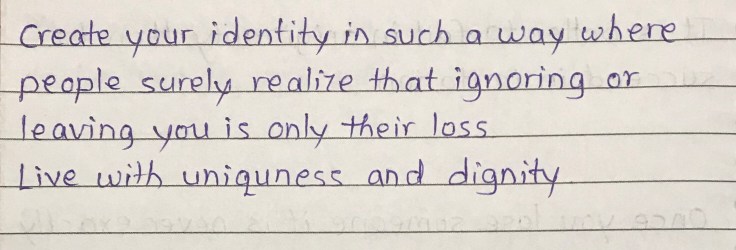 Create your identity in such a way where
people surely realize that ignoring or
leaving you is only their loss
Live with uniquness and dignity